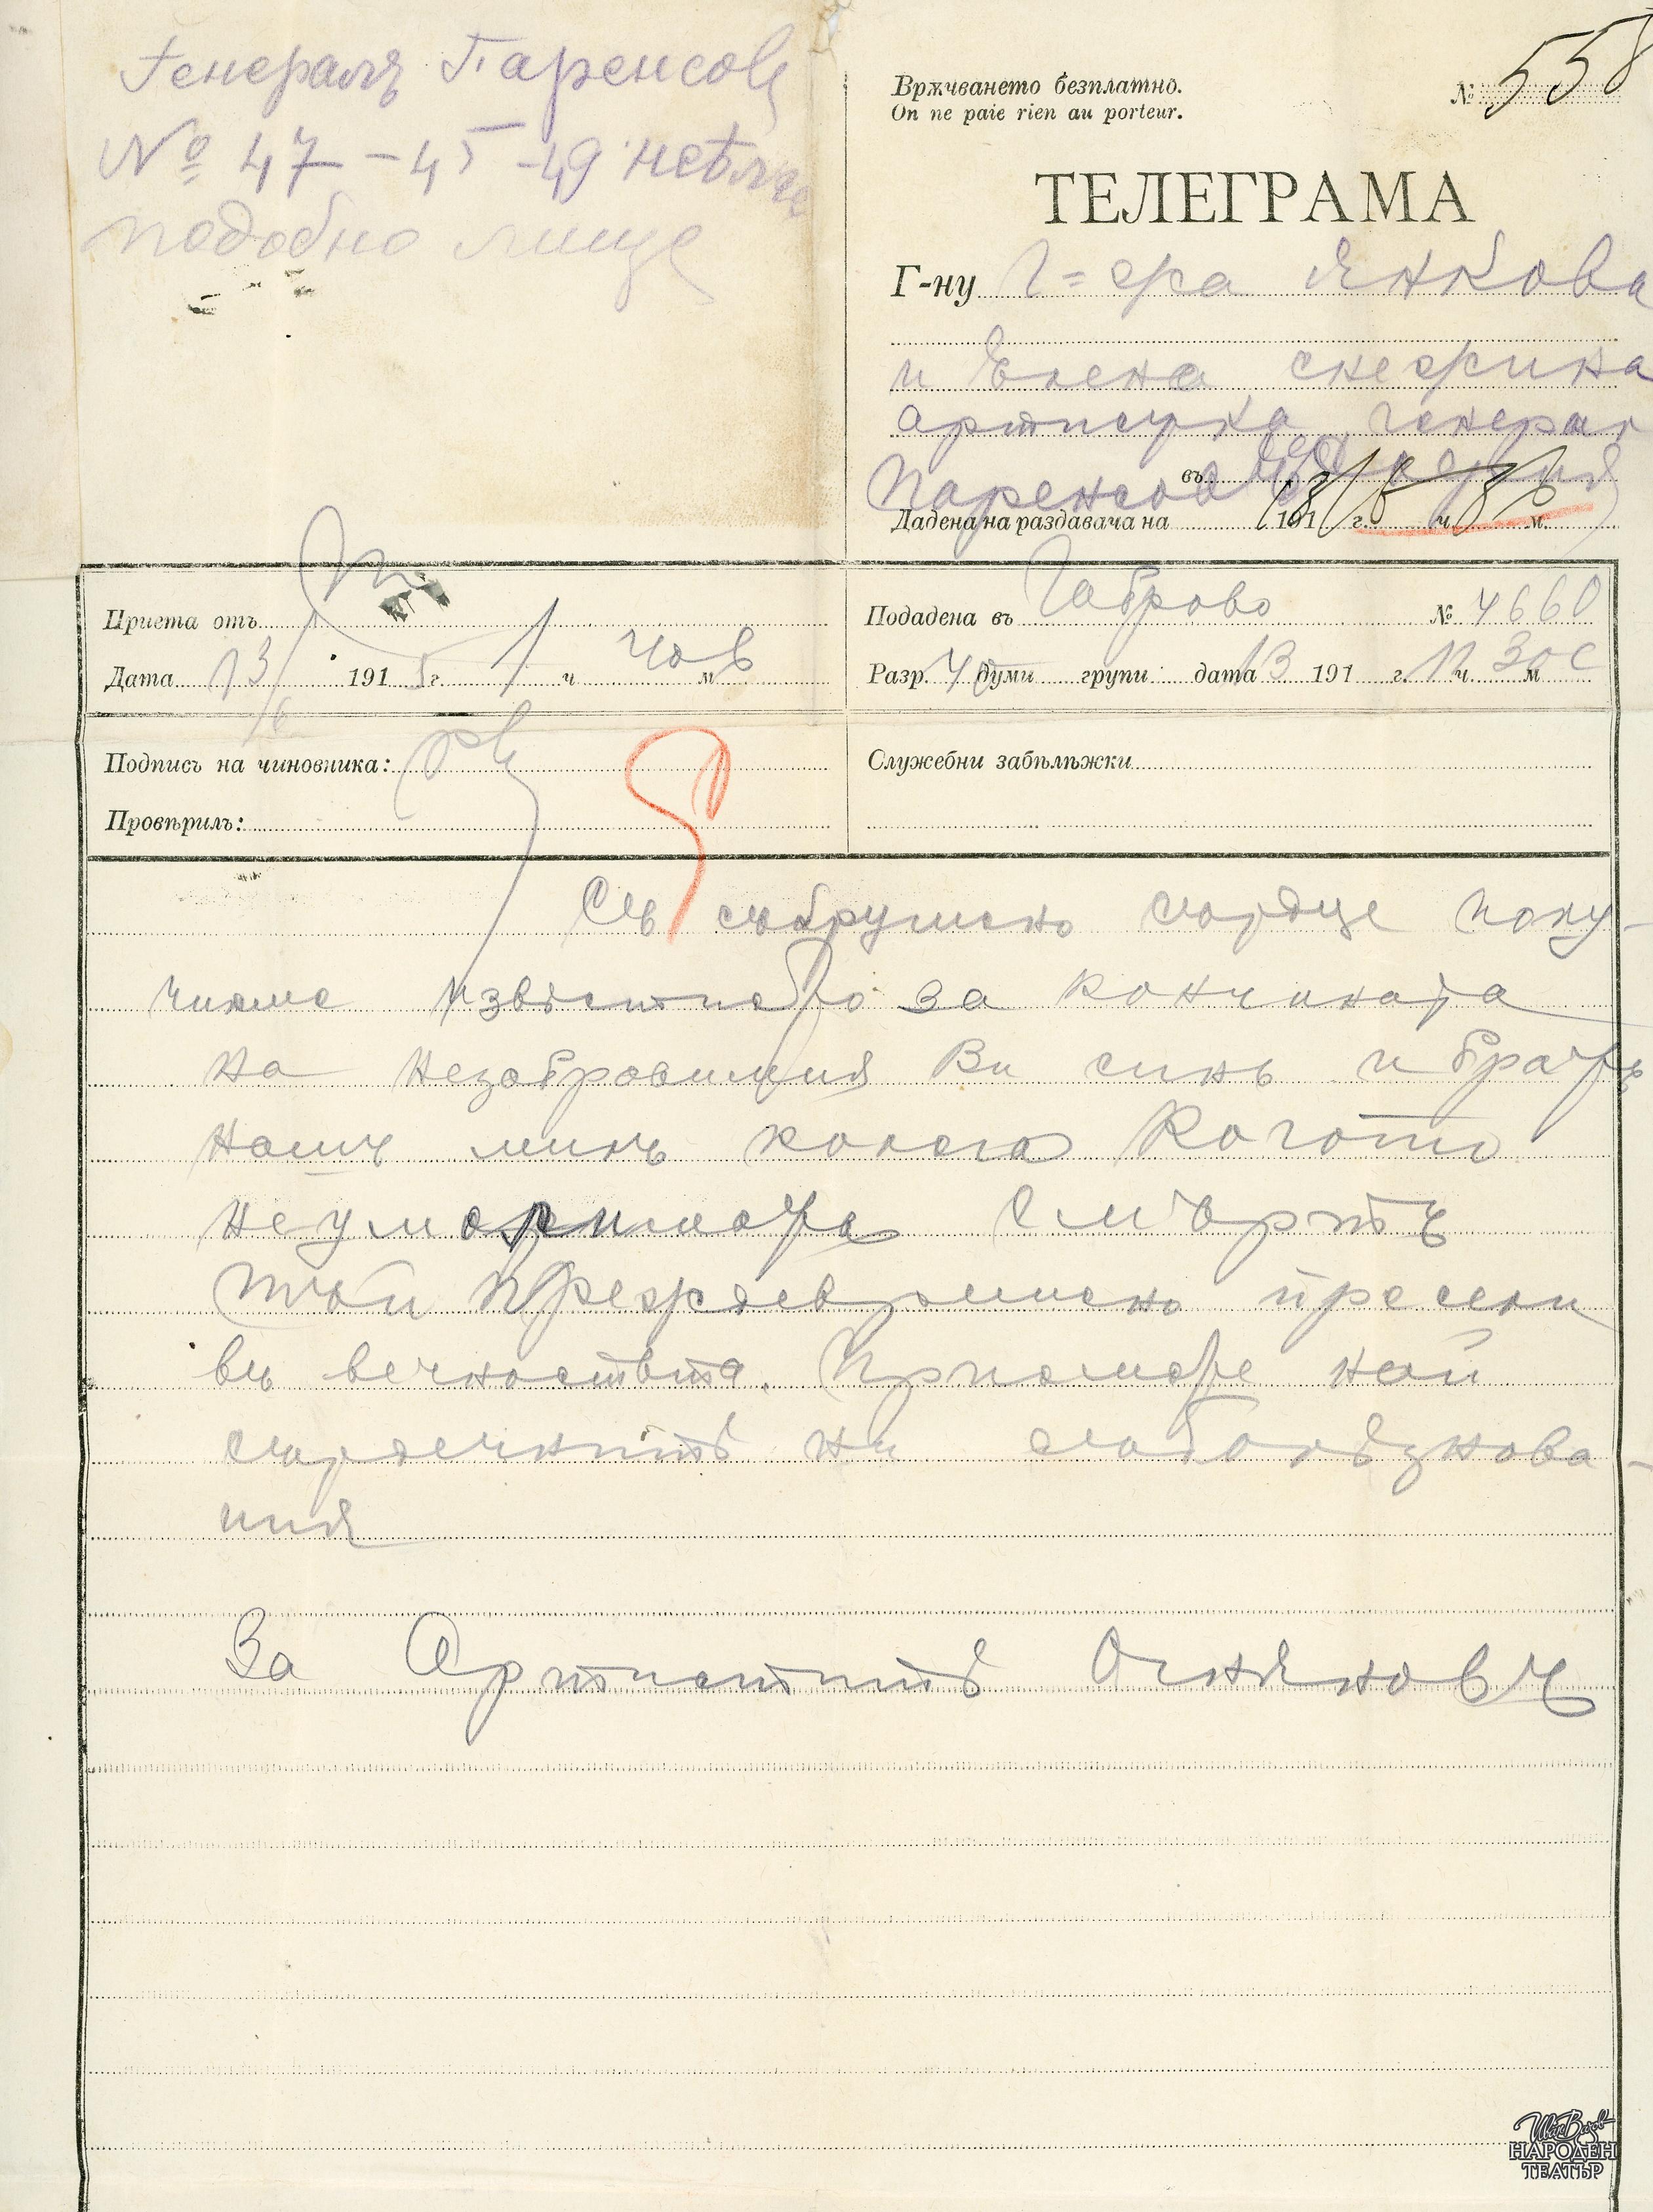 Генералъ Паренсовъ
№ 47 – 45 – 49 нѣма
подобно лице
Врѫчването безплатно.
On ne paie rien au porteur.
№ 558
ТЕЛЕГРАМА
Г-ну Г-жа Янкова
и Елена Снежина
артистка Генерал
Паренсов
въ
Дадена на раздавача на 191 г. ч. м.
Приета отъ
Дата 13/6 1915 г. 1 ч 40 в м
Подадена въ Габрово № 4660
Разр. 40 думи групи дата 13 191 г. 12 ч. 30 м с
Подписъ на чиновника:
Провѣрилъ:
Служебни забѣлѣжки
Съ съкрушено сърдце полу-
чихме известието за кончината
на незабравимия Ви синъ и братъ
нашъ милъ колега Когото
неуморимата смърть
тъй преждевременно пресели
въ вечностьта. Приемете най
сърдечнитѣ ни съболѣзнова-
ния
За Артиститѣ Огняновъ
Иван Вазов
НАРОДЕН
ТЕАТЪР